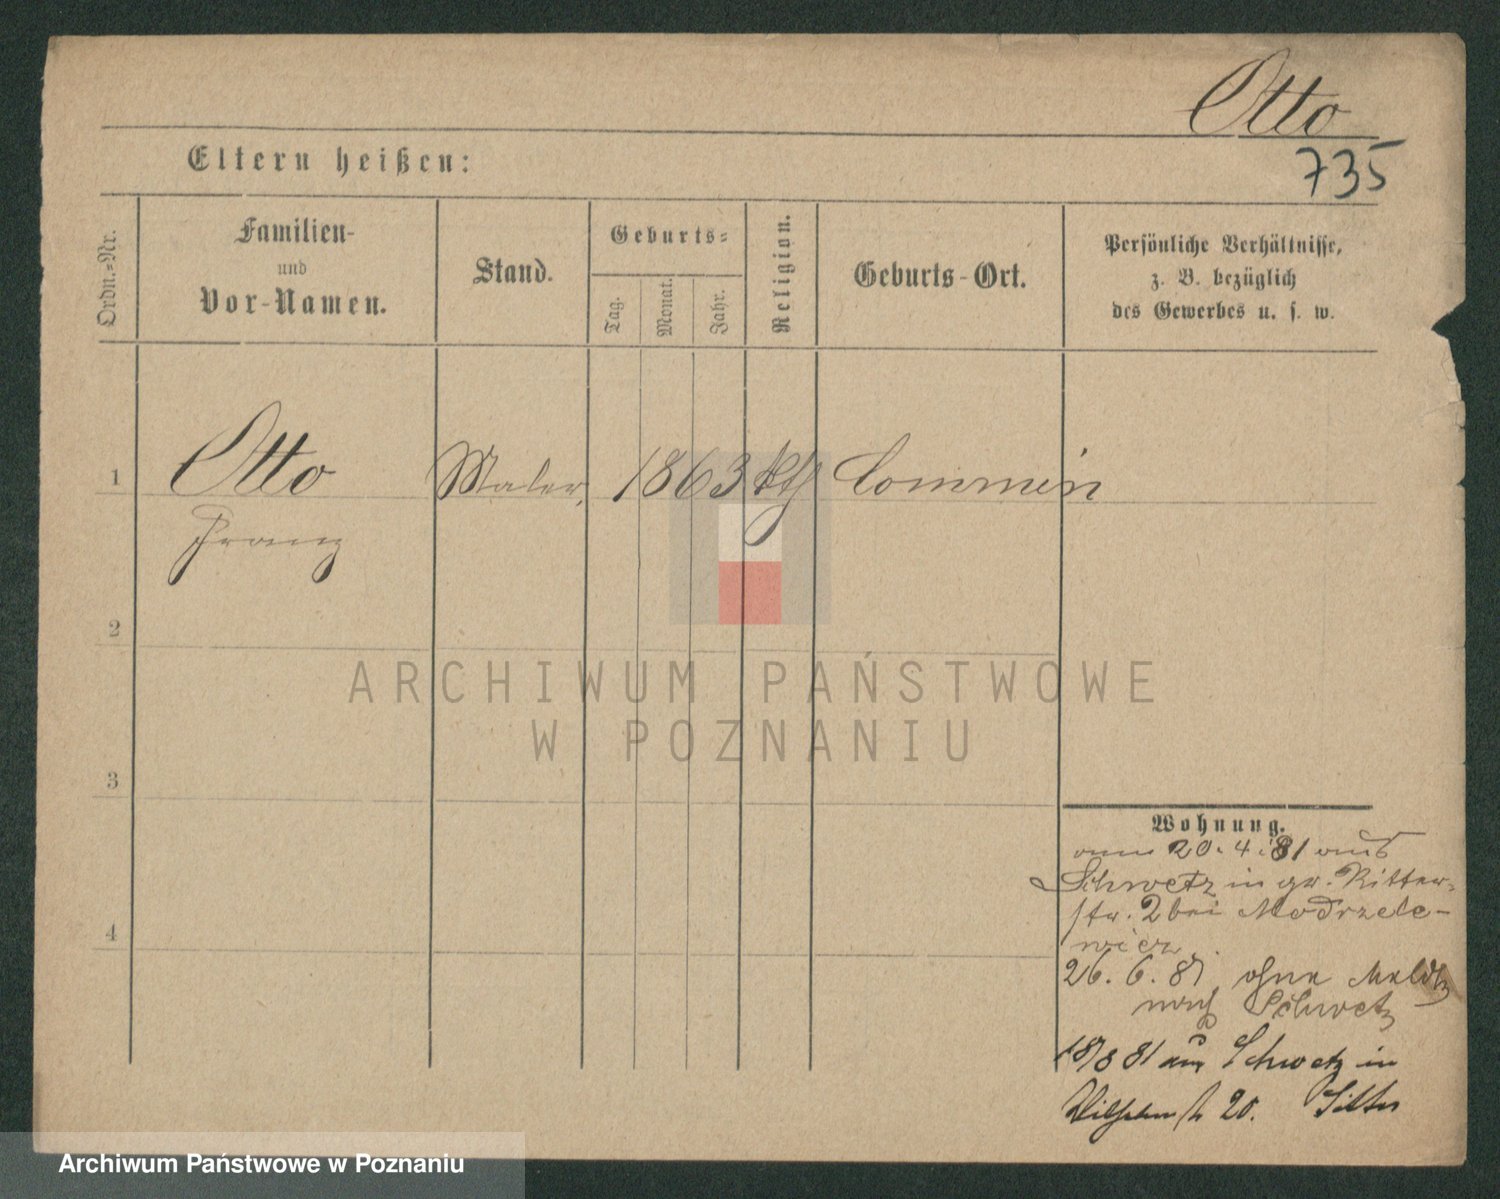 Otto
735
Eltern heißen:
Ordn.=Nr.
Familien-
und
Vor-Namen.
Stand.
Geburts=
Tag.
Monat.
Jahr.
Religion.
Geburts-Ort.
Persönliche Verhältnisse,
z. B. bezüglich
des Gewerbes u. s. w.
1
Otto Maler, 1863 kth Commin
Franz
2
3
4
ARCHIWUM PAŃSTWOWE
W POZNANIU
Wohnung.
20.4.81 aus
Schwetz in gr. Ritter-
str. 2 bei Modrzele-
26.6.81 ohne Meldg
nach Schwetz
18/8 81 aus Schwetz in
Wilhelm 20.
Archiwum Państwowe w Poznaniu